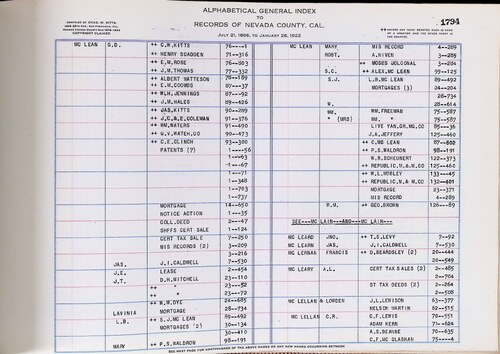 ALPHABETICAL GENERAL INDEX
TO
RECORDS OF NEVADA COUNTY, CAL.
JULY 21, 1856, TO JANUARY 26, 1922
1794
COPYRIGHT CLAIMED
MC LEAN G.D. ++ C.M.KITTS 76----1
++ HENRY SCADDEN 71-316
++ E.M.ROSE 76-803
++ J.M.THOMAS 77-332
++ ALBERT WATTESON 78-189
++ E.W.COOMBS 87--37
++ W.H.JENNINGS 87--92
++ J.M.HALES 89-426
++ JAS.KITTS 89-289
++ J.C.& E.COLEMAN 91-376
++ WM.WATERS 91-490
++ G.V.WATCH.CO 90-473
++ C.E.CLINCH 93-300
PATENTS (7) 1---56
1---63
1---67
1---71
1--348
1--703
1--737
MORTGAGE 14--650
NOTICE ACTION 1---35
COLL.DEED 2---47
SHFFS CERT SALE 1--124
CERT TAX SALE 7--250
MIS RECORDS (2) 3--209
3--216
JAS. J.I.CALDWELL 7--530
J.E. LEASE 2--454
J.T. D.H.MITCHELL 23--110
++ " 23---52
++ " 23---72
++ W.W.DYE 24--685
LAVINIA MORTGAGE 28--734
L.B. ++ S.J.MC LEAN 89-492
MORTGAGES (2) 30--134
MARY ++ P.S.WALDRON 98-191
MC LEAN MARY MIS RECORD 4--289
ROBT. A.NIVEN 3--289
++ MOSES 3--204
S.C. ++ ALEX.MC LEAN 99-125
S.J. L.B.MC LEAN 89-492
MORTGAGES (3) 24--204
28-734
W. 28--614
WM. WM.FREEMAN 75-587
" (MRS) WM. " 75-587
LIVE YAN.GR.MG.CO 85--36
J.A.JEFFERY 125--460
++ C.MC LEAN 87-602
++ P.S.WALDRON 98-191
W.R.SCHEUNERT 122--373
++ REPUBLIC.M.& M.CO 125--460
++ W.L.MOBLEY 133---45
++ REPUBLIC.M.& M.CO 132--401
MORTGAGE 23--371
MIS RECORD 4--289
W.M. ++ GEO.BROWN 126---89
SEE---MC LAIN---AND---MC LANE---
MC LEARD JNO. ++ T.S.LEVY 7--92
MC LEARN JAS. J.I.CALDWELL 7--530
MC LERNAN FRANCIS ++ D.BEARDSLEY (2) 20--444
20--549
MC LEARY A.L. CERT TAX SALES (2) 2--485
2--704
ST TAX DEEDS (2) 2--264
2--508
MC LELLAN & LORDEN J.L.LEWISON 63-377
NELSON MARTIN 62-515
MC LELLAN C.R. C.F.LEWIS 70-551
ADAM KERN 71-624
A.S.BEANE 70-635
C.F.MC GLASHAN 75----4